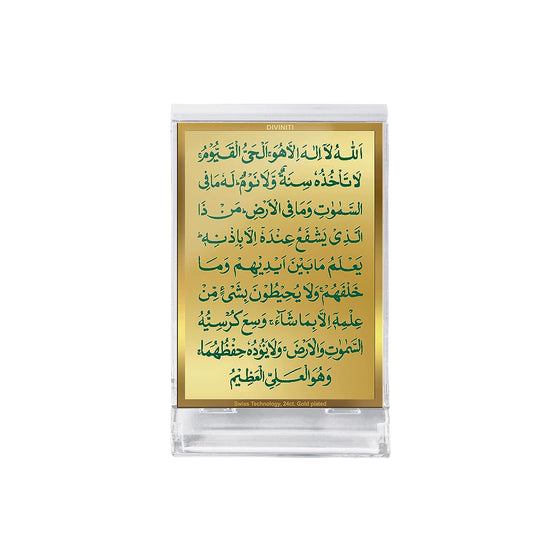 DIVINITI
اَللّٰهُ لَآ اِلٰهَ اِلَّا هُوَ ۚ اَلْحَیُّ الْقَیُّوْمُ ۚ
لَا تَاْخُذُهٗ سِنَةٌ وَّلَا نَوْمٌ ؕ لَهٗ مَا فِی
السَّمٰوٰتِ وَمَا فِی الْاَرْضِ ؕ مَنْ ذَا
الَّذِیْ یَشْفَعُ عِنْدَهٗۤ اِلَّا بِاِذْنِهٖ ؕ
یَعْلَمُ مَا بَیْنَ اَیْدِیْهِمْ وَمَا
خَلْفَهُمْ ۚ وَلَا یُحِیْطُوْنَ بِشَیْءٍ مِّنْ
عِلْمِهٖۤ اِلَّا بِمَا شَآءَ ۚ وَسِعَ كُرْسِیُّهُ
السَّمٰوٰتِ وَالْاَرْضَ ۚ وَلَا یَـُٔوْدُهٗ حِفْظُهُمَا ۚ
وَهُوَ الْعَلِیُّ الْعَظِیْمُ
Swiss Technology, 24ct. Gold plated